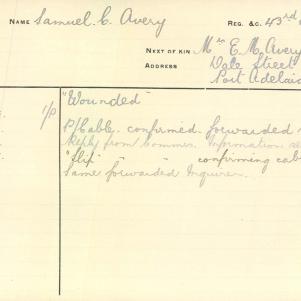 NAME Samuel. C. Avery REG. &C. 43rd
NEXT OF KIN Mrs E. M. Avery
ADDRESS Dale Street
Port Adelaid
"Wounded"
1/P P/Cable. confirmed. forwarded
Reply from Commen. Information
"Slip" " " confirming cab
Same forwarded Inquirer.